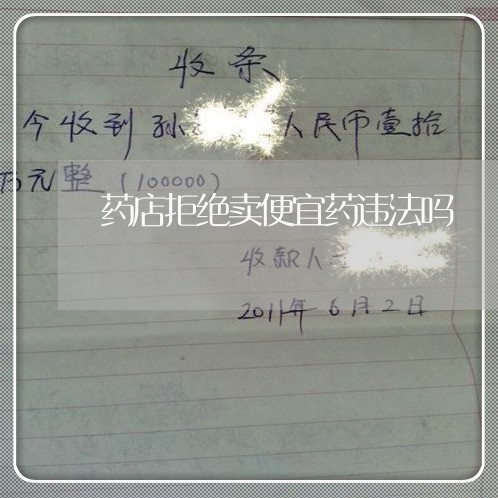 收条
今收到孙 人民币壹拾
万元整（100000）
药店拒绝卖便宜药违法吗
收款人
2011年6月2日